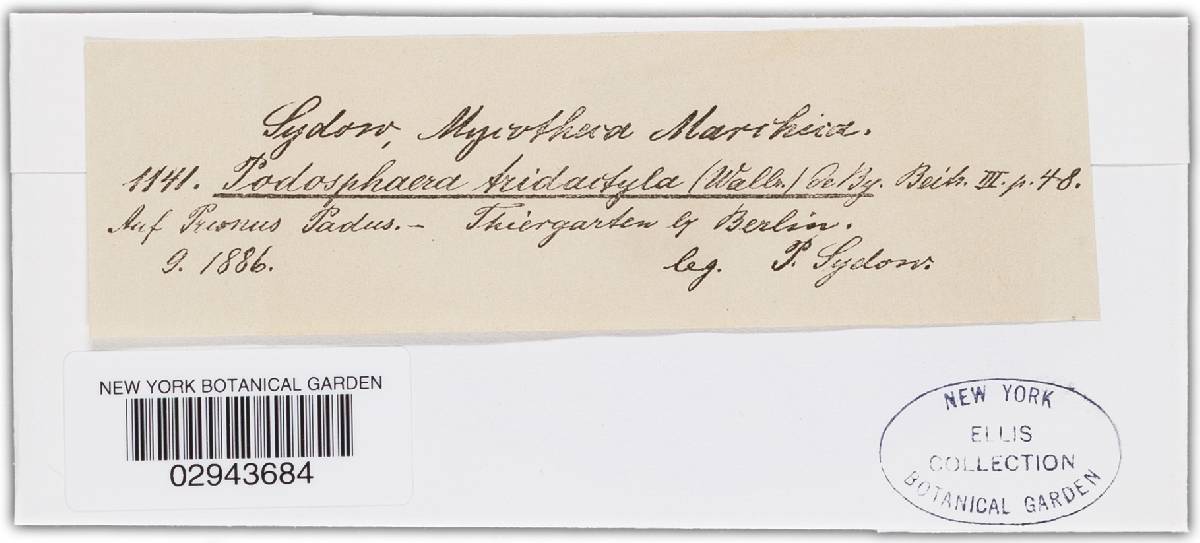 Sydow, Mycotheca Marchica.
1141. Podosphaera tridactyla (Wallr.) De By. Beitr. III. p. 48.
Auf Prunus Padus. — Thiergarten b/ Berlin.
9. 1886. leg. P. Sydow.
NEW YORK BOTANICAL GARDEN
02943684
NEW YORK
ELLIS
COLLECTION
BOTANICAL GARDEN